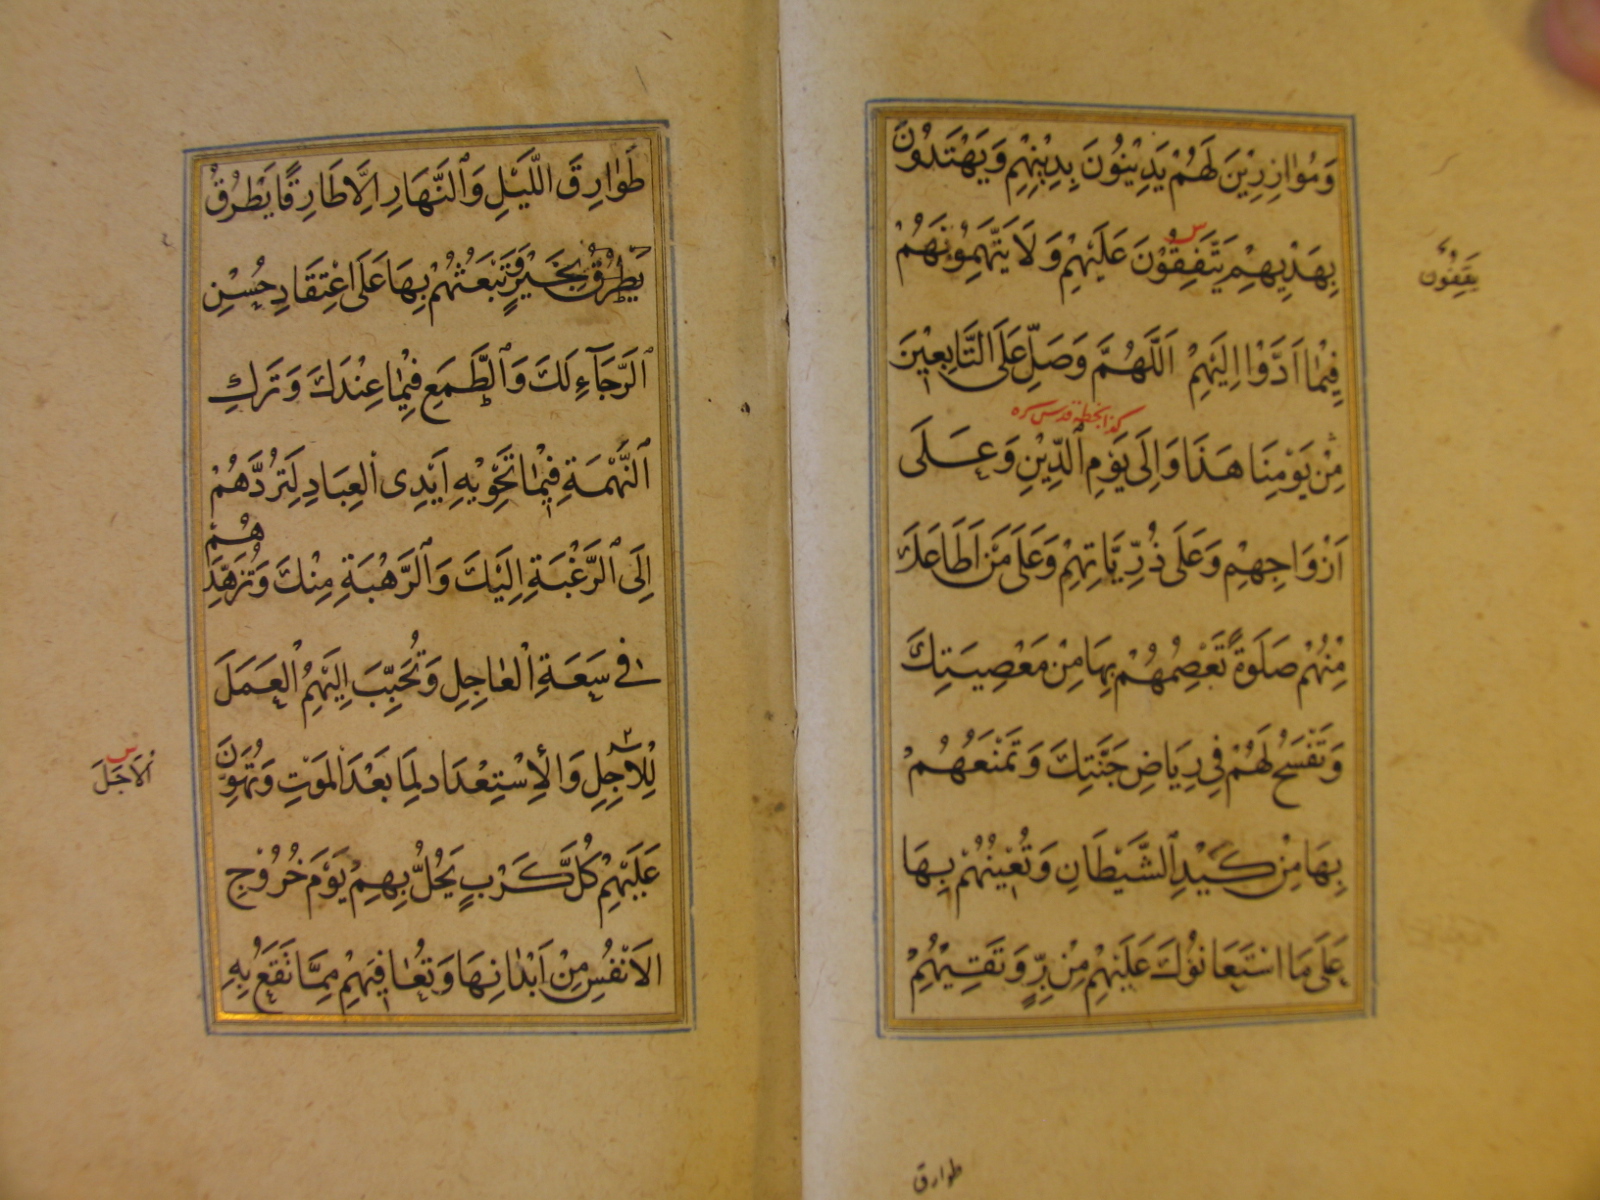 وَمُوٰازِرِيْنَ لَهُمْ يَدِيْنُونَ بِدِيْنِهِمْ وَيَهْتَدُوْنَ
بِهَدْيِهِمْ يَتَّفِقُوْنَ عَلَيْهِمْ وَلَا يَتَّهِمُوْنَهُمْ
س
يَقِفُونَ
فِيْمٰا اَدَّوْا اِلَيْهِمْ اَللَّهُمَّ وَصَلِّ عَلَى التَّابِعِيْنَ
كذا بخطه قدس سره
مِنْ يَوْمِنَا هَذَا وَاِلَى يَوْمِ ٱلدِّيْنِ وَعَلَى
اَزْوَاجِهِمْ وَعَلَى ذُرِّيَّاتِهِمْ وَعَلَى مَنْ اَطَاعَكَ
مِنْهُمْ صَلَوةً تَعْصِمُهُمْ بِهَا مِنْ مَعْصِيَتِكَ
وَتَفْسَحُ لَهُمْ فِي رِيَاضِ جَنَّتِكَ وَتَمْنَعُهُمْ
بِهَا مِنْ كَيْدِ ٱلشَّيْطَانِ وَتُعْيِنُهُمْ بِهَا
عَلَى مَا اسْتَعَانُوْكَ عَلَيْهِمْ مِنْ بِرٍّ وَتَقِيْهِمْ
طوارق
طَوٰارِقَ اللَّيْلِ وَٱلنَّهَارِ اِلَّا طَارِقًا يَطْرُقُ
يَطْرُقُ بِخَيْرٍ وَتَبْعَثُهُمْ بِهَا عَلَى اعْتِقَادِ حُسْنِ
ٱلرَّجَآءِ لَكَ وَٱلطَّمَعِ فِيْمٰا عِنْدَكَ وَتَرْكِ
ٱلتُّهْمَةِ فِيْمٰا تَحْوِيْهِ اَيْدِى ٱلعِبَادِ لِتَرُدَّهُمْ
اِلَى ٱلرَّغْبَةِ اِلَيْكَ وَٱلرَّهْبَةِ مِنْكَ وَتُزَهِّدَهُمْ
فِى سَعَةِ الْعٰاجِلِ وَتُحَبِّبَ اِلَيْهِمُ الْعَمَلَ
لِلْاٰجِلِ وَالْاِسْتِعْدَادَ لِمَا بَعْدَ الْمَوْتِ وَتُهَوِّنَ
س
الْاَجَلَ
عَلَيْهِمْ كُلَّ كَرْبٍ يَحُلُّ بِهِمْ يَوْمَ خُرُوْجِ
الاَنْفُسِ مِنْ اَبْدٰانِهَا وَتُعٰافِيَهُمْ مِمَّا تَقَعُ بِهِ